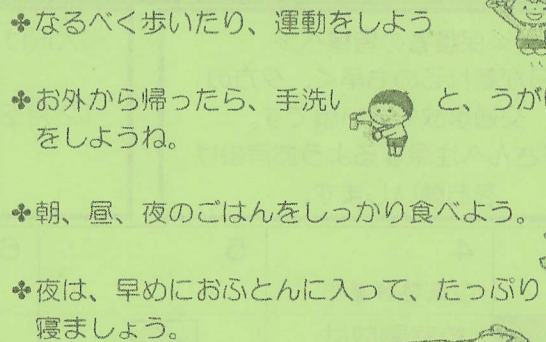 ✤なるべく歩いたり、運動をしよう
✤お外から帰ったら、手洗い と、うが
をしようね。
✤朝、昼、夜のごはんをしっかり食べよう。
✤夜は、早めにおふとんに入って、たっぷり
寝ましょう。